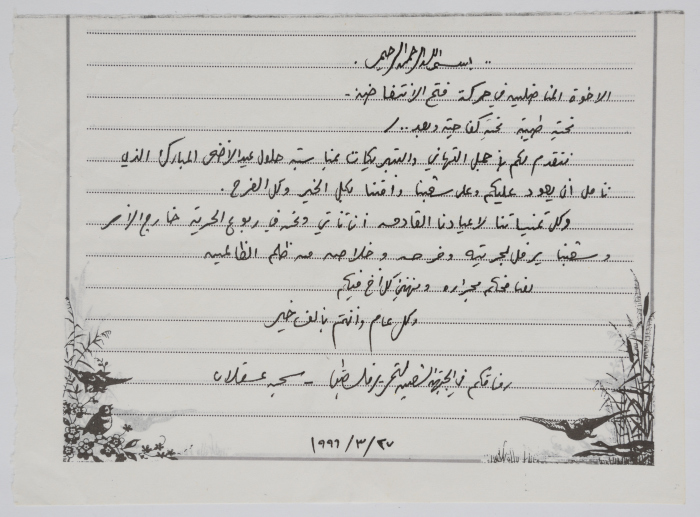 بسم الله الرحمن الرحيم .
الاخوة المناضلين في حركة فتح الانتفاضة -
تحية طيبة تحية كفاحية وبعد .. /
نتقدم لكم باجمل التهاني والتبريكات بمناسبة حلول عيد الاضحى المبارك الذي
نامل ان يعود عليكم وعلى شعبنا وامتنا بكل الخير وكل الفرح .
وكل تمنياتنا لاعيادنا القادمة ان تأتي ونحن في ربوع الحرية خارج الأسر
وشعبنا يرفل بحريته وفرحه وخلاصه من ظلم الظالمين
نصافحكم بحرارة ونهنئ كل أخ فيكم
وكل عام وانتم بألف خير
رفاقكم في الجبهة الشعبية لتحرير فلسطين - سجن عسقلان
١٩٩٦/٣/٢٧